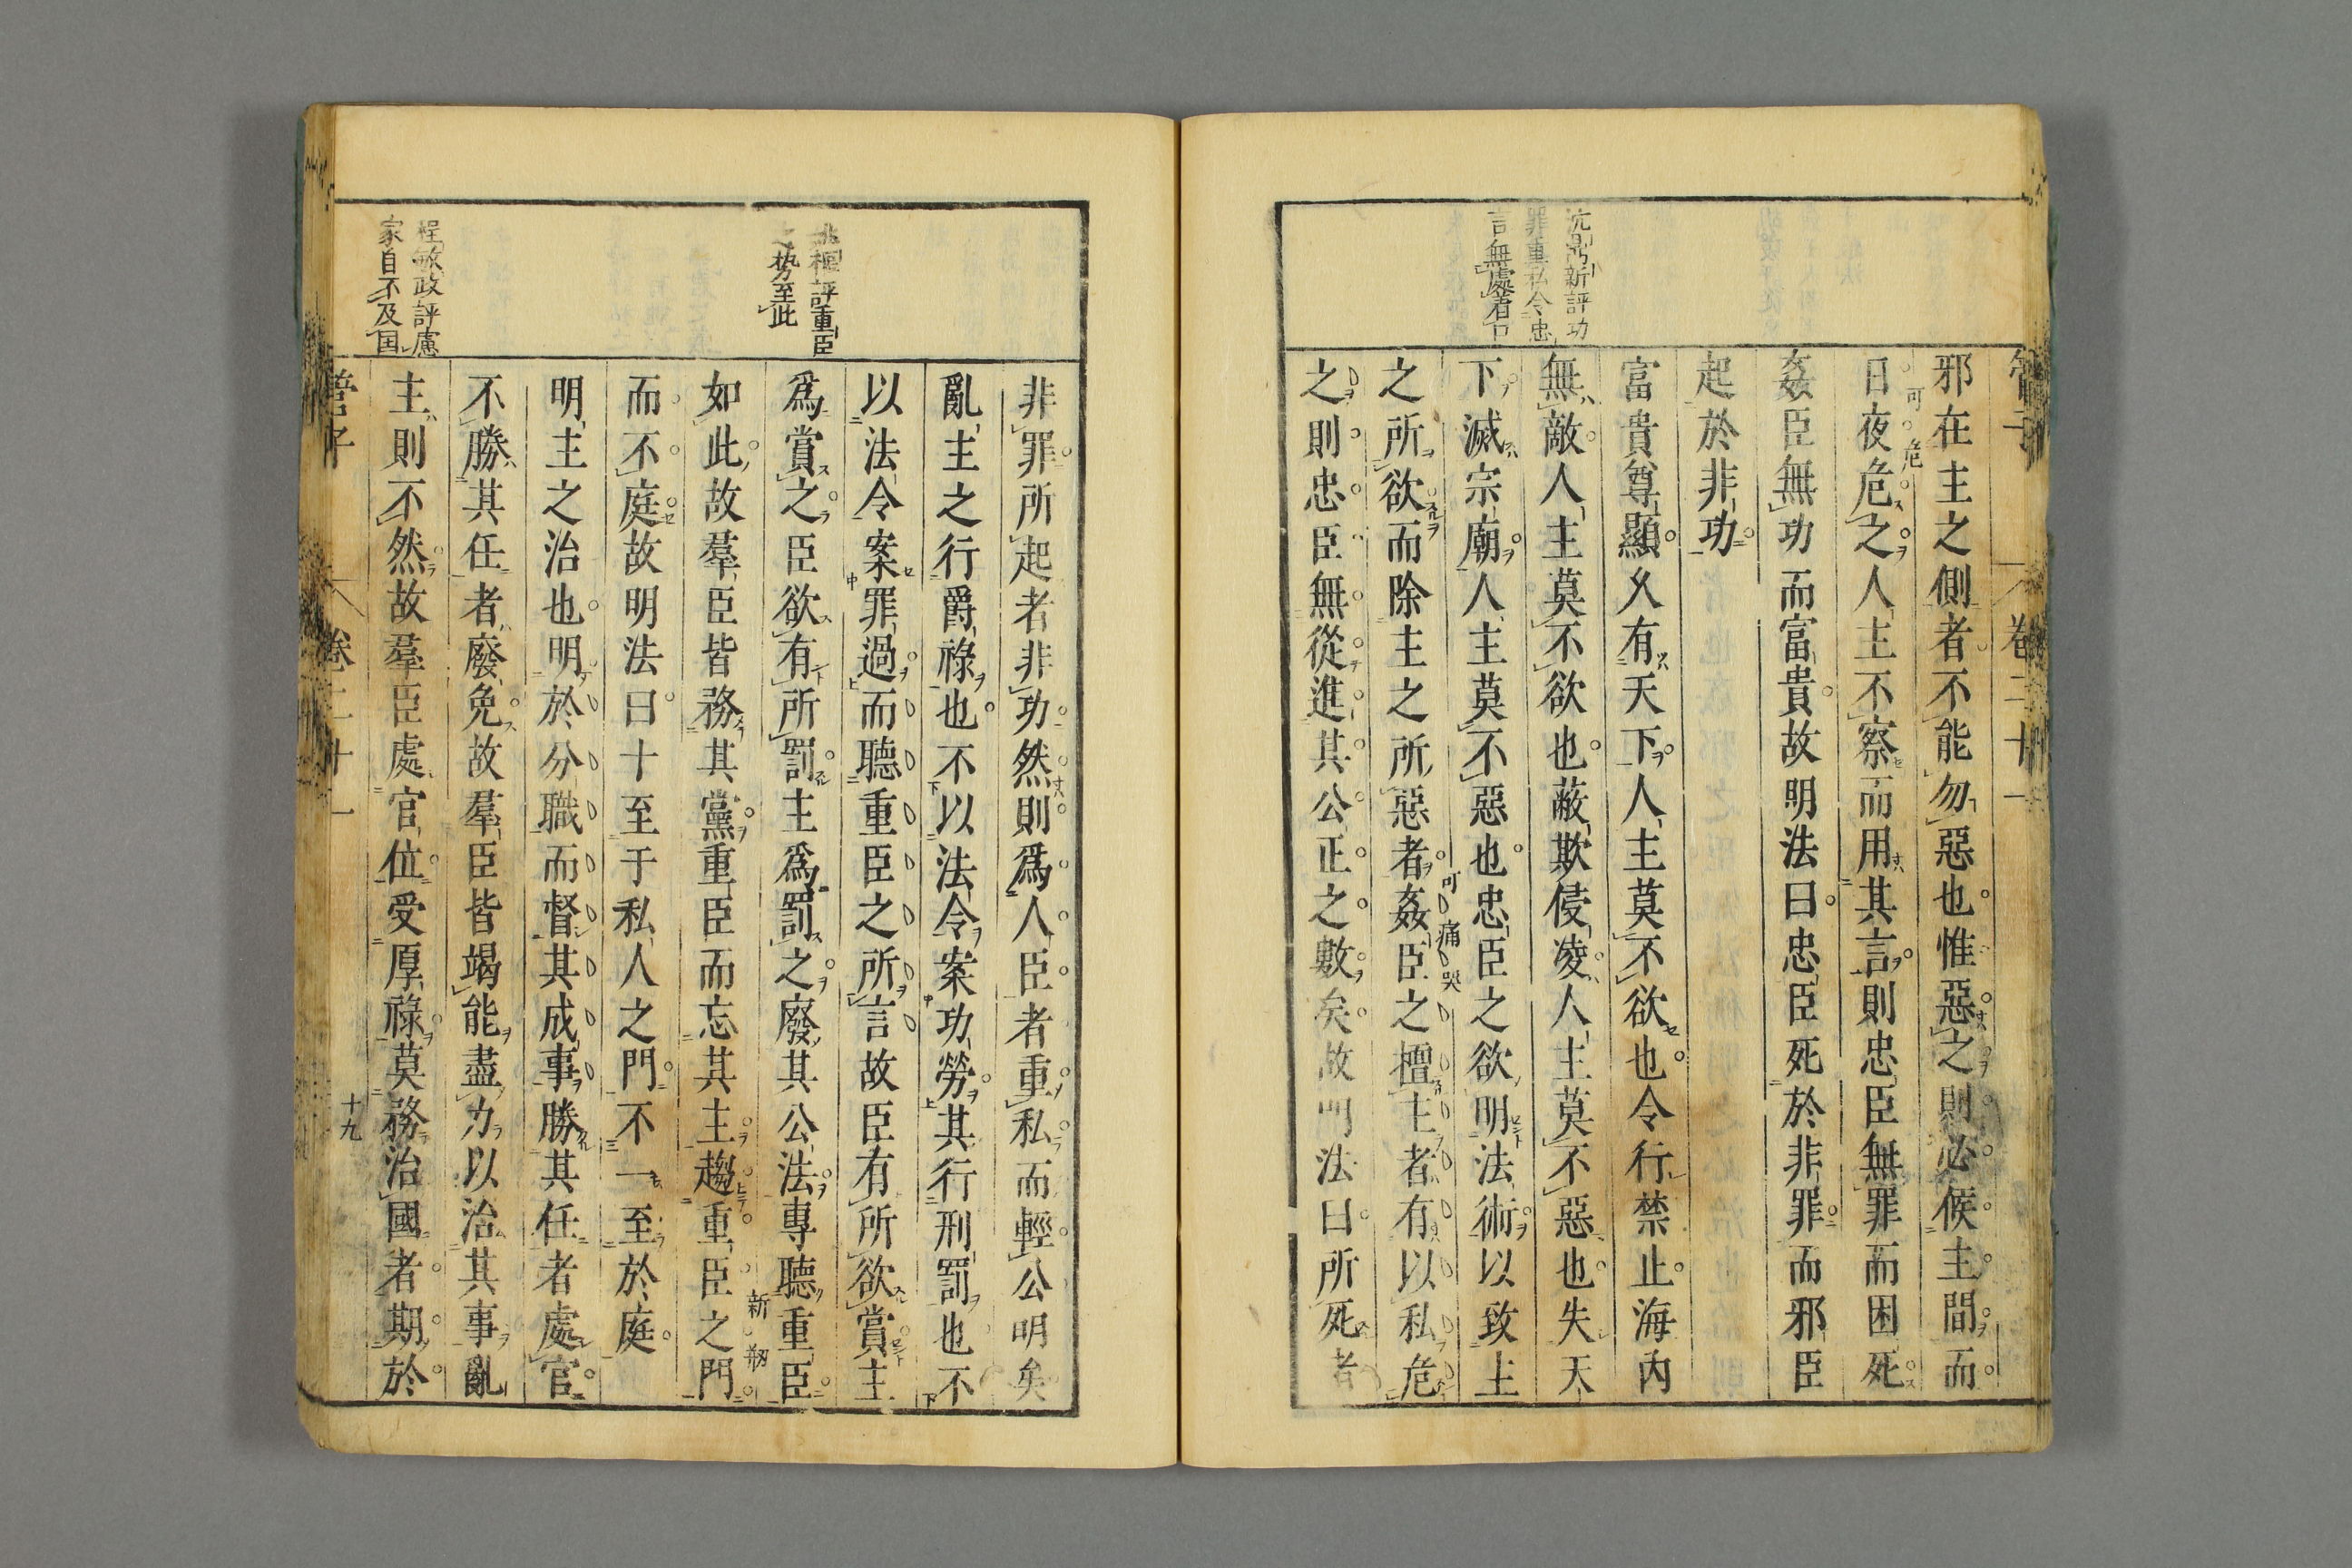 管子 卷二十一
邪在主之側者不能勿惡也惟惡之則必候主間而
日夜危之人主不察而用其言則忠臣無罪而困死
可危
姦臣無功而富貴故明法曰忠臣死於非罪而邪臣
起於非功
富貴尊顯乆有天下人主莫不欲也令行禁止海內
無敵人主莫不欲也蔽欺侵凌人主莫不惡也失天
下滅宗廟人主莫不惡也忠臣之欲明法術以致主
之所欲而除主之所惡者姦臣之擅主者有以私危
可痛哭
之則忠臣無從進其公正之數矣故明法曰所死者
沈鼎新評功
罪專私令忠
言無處着口
非罪所起者非功然則爲人臣者重私而輕公明矣
亂主之行爵祿也不以法令案功勞其行刑罰也不
以法令案罪過而聽重臣之所言故臣有所欲賞主
爲賞之臣欲有所罰主爲罰之廢其公法專聽重臣
如此故羣臣皆務其黨重臣而忘其主趨重臣之門
新剏
而不庭故明法曰十至于私人之門不一至於庭
明主之治也明於分職而督其成事勝其任者處官
不勝其任者廢免故羣臣皆竭能盡力以治其事亂
主則不然故羣臣處官位受厚祿莫務治國者期於
評重臣
之势至此
程敏政評慮
家自不及国
管子 卷二十一 十九